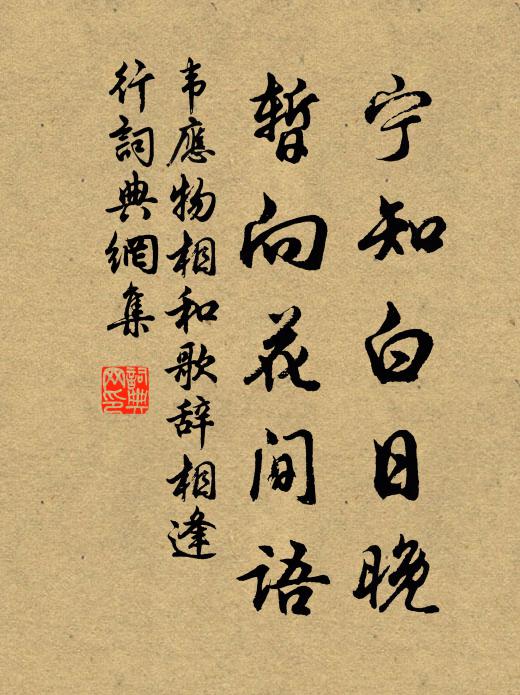 宁知白日晚
暫向花间語
韦應物相和歌辞相逢
行詞典網集
詞典
网印